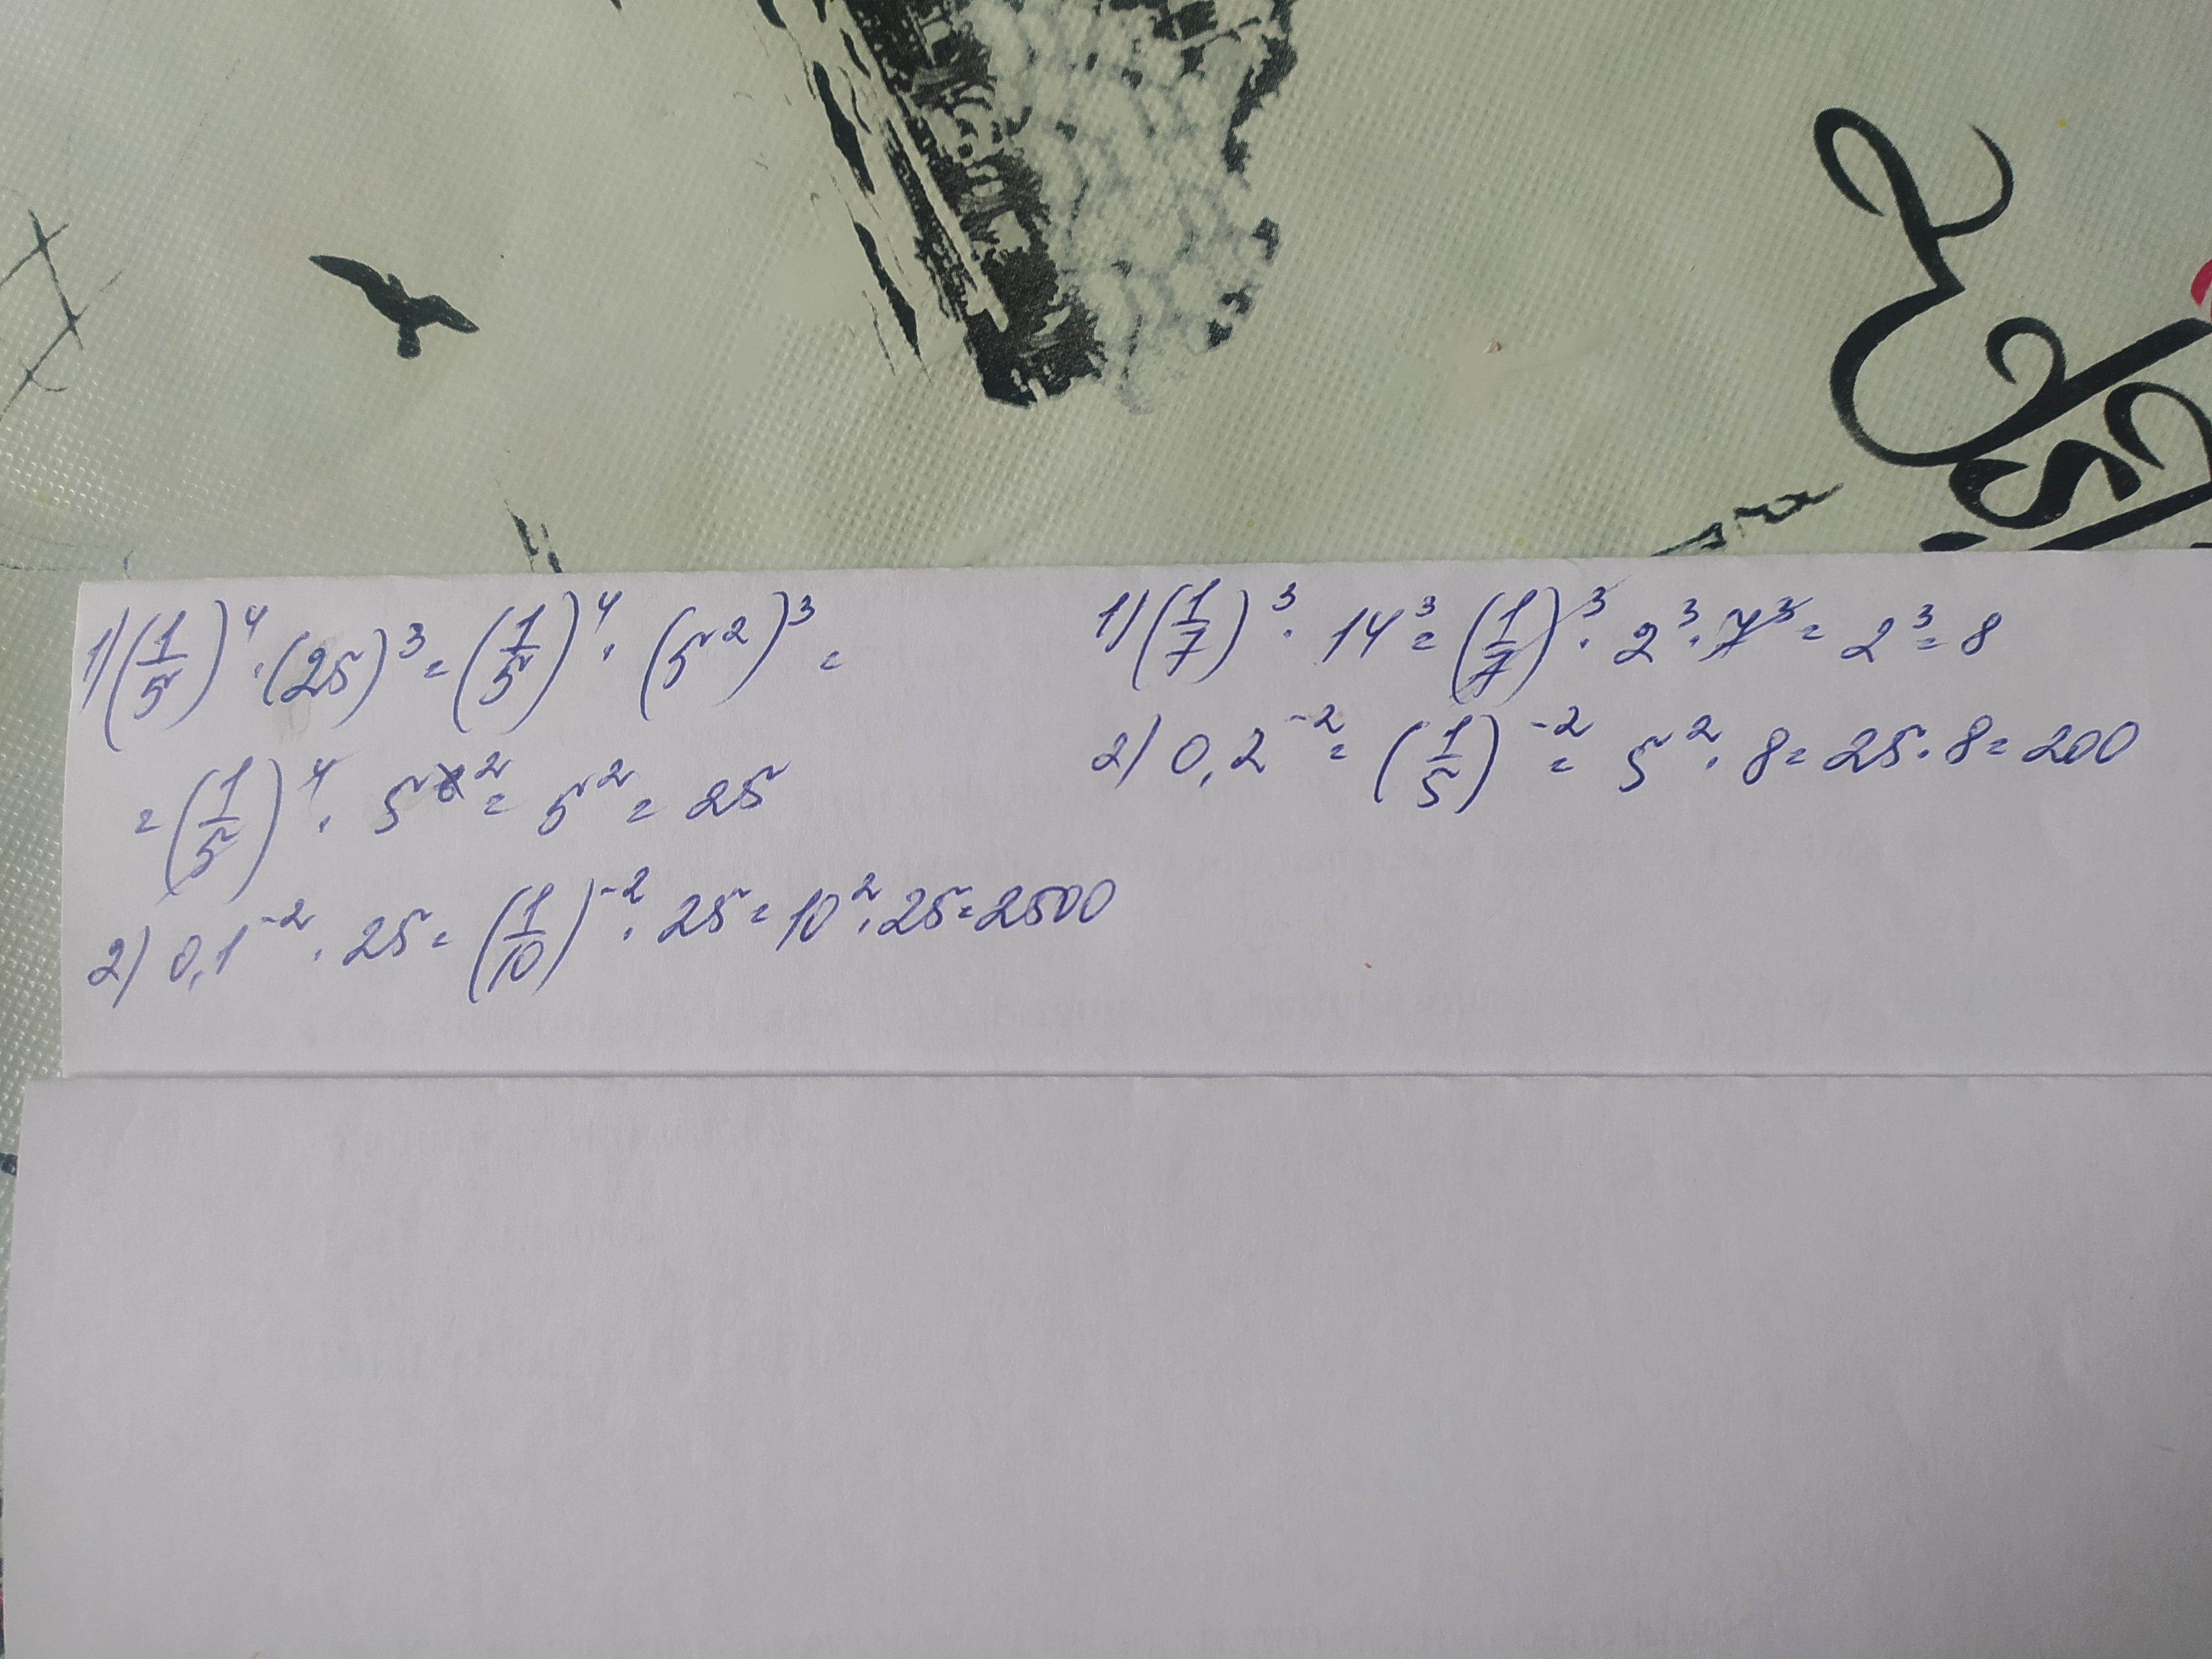 1) (1/5)^4 · (25)^3 = (1/5)^4 · (5^2)^3 =
= (1/5)^4 · 5^6 ^2 = 5^2 = 25
2) 0,1^-2 · 25 = (1/10)^-2 · 25 = 10^2 · 25 = 2500
1) (1/7)^3 · 14^3 = (1/7)^3 · 2^3 · 7^3 = 2^3 = 8
2) 0,2^-2 = (1/5)^-2 = 5^2 · 8 = 25 · 8 = 200